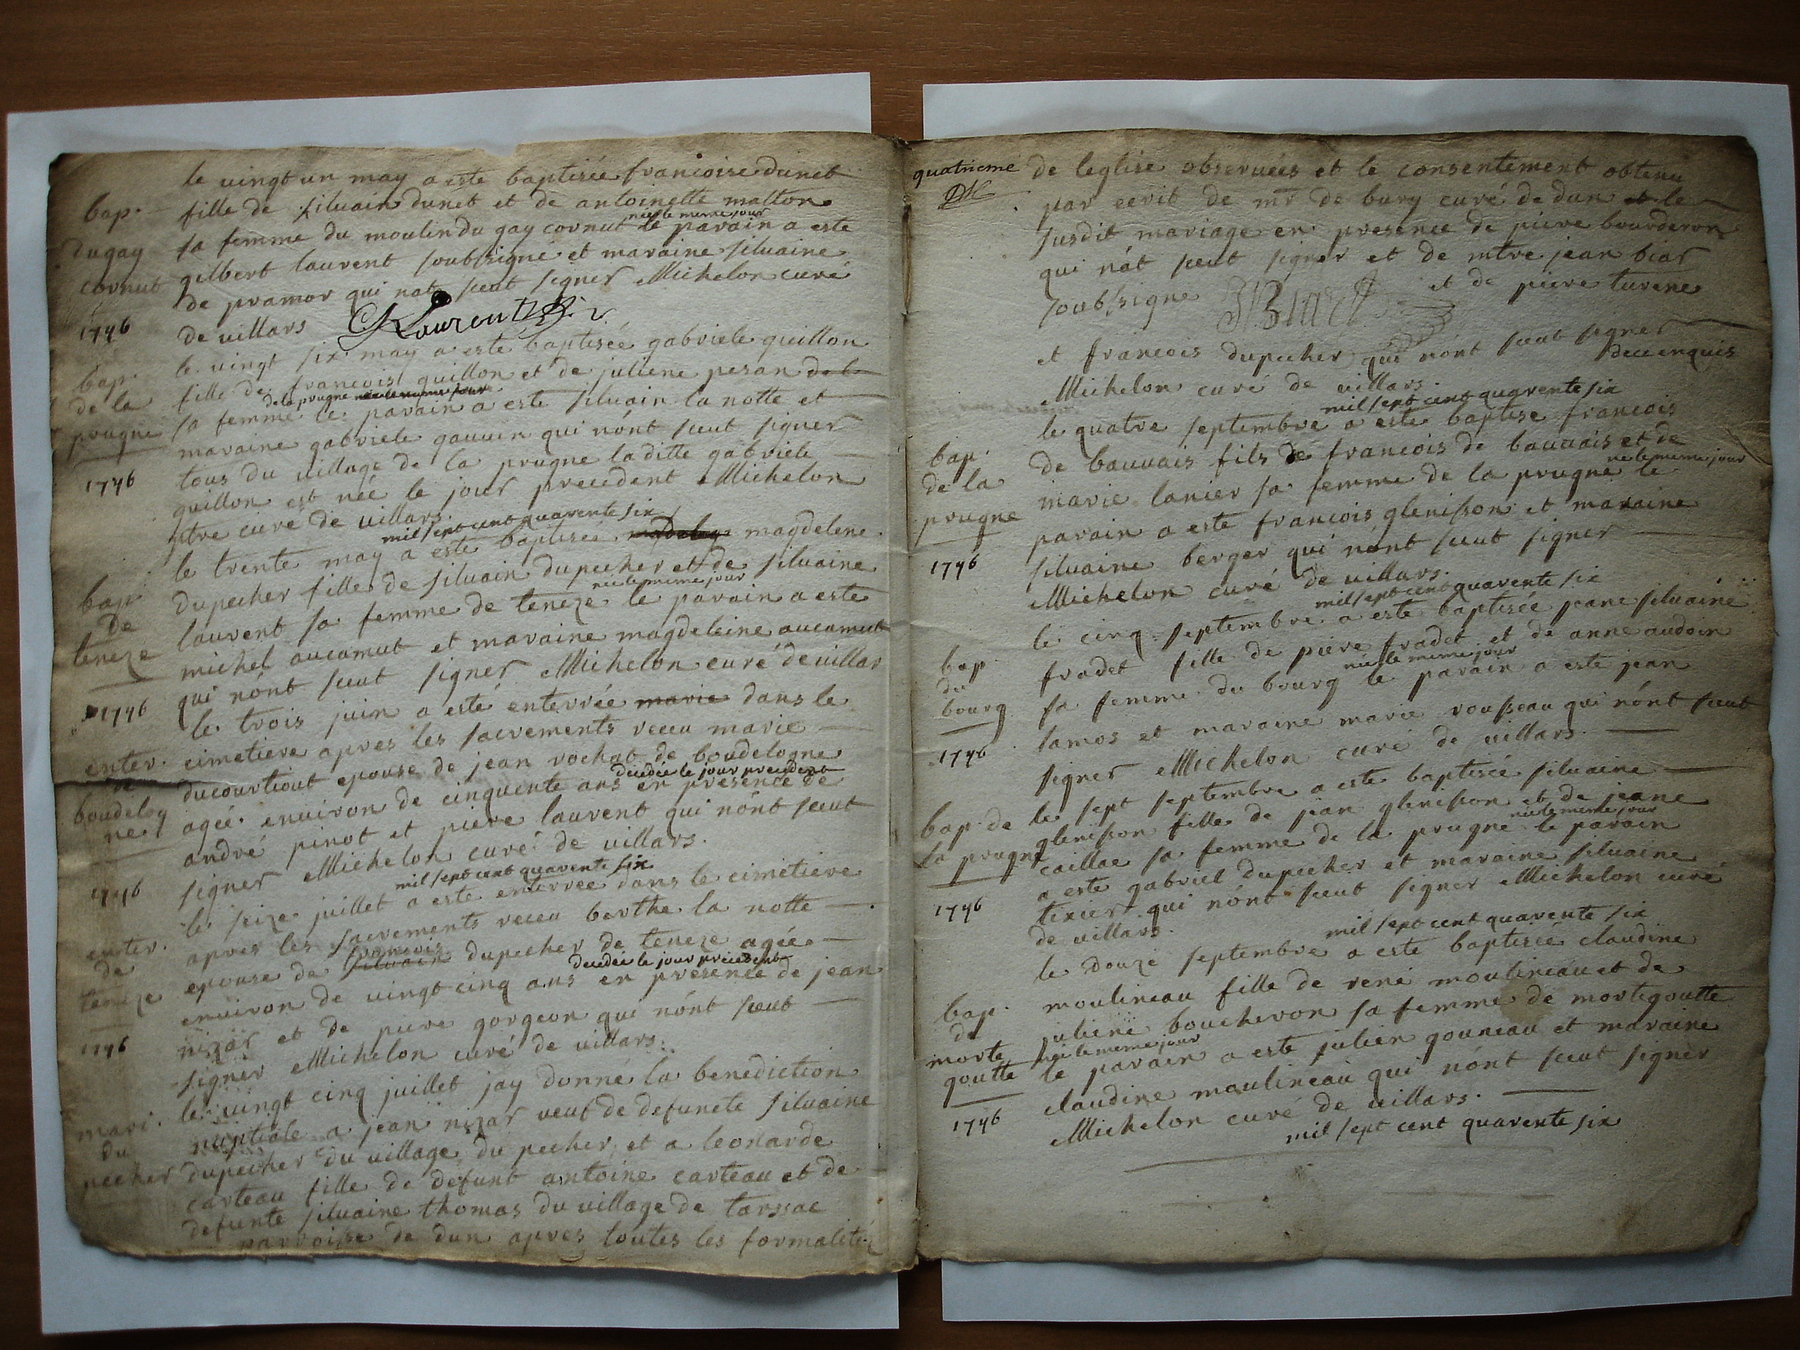 le vingt un may a este baptisée francoise dunet
bap. fille de siluain dunet et de antoinette malton
née le meme jour
du gay sa femme du moulin du gay cornut le parain a este
cornut gilbert laurent soubssigné et maraine siluaine
de pramor qui nat sceut signer Michelon curé
1746 de villars Laurent
le vingt six may a esté baptisée gabriele quillon
bap. fille de francois quillon et de juliene peran de la
de la prugne née le meme jour
de la sa femme le parain a este siluain la notte et
prugne maraine gabriele gauuin qui nónt sceut signer
tous du village de la prugne laditte gabriele
1746 quillon est née le jour precedent Michelon
ptre curé de villars.
mil sept cent quarente six
le trente may a este baptisée magdelene
bap dupecher fille de siluain dupecher et de siluaine
née le meme jour
de laurent sa femme de teneze le parain a este
teneze michel aucamut et maraine magdeleine aucamut
qui nónt sceut signer Michelon curé de villars
1746 le trois juin a esté enterrée marie dans le
enter. cimetiere apres les sacrements receu marie
de ducourtiout epouse de jean rochat de boudelogne
decedée le jour precedent
boudelog agée enuiron de cinquente ans en presence de
ne andré pinot et piere laurent qui nónt sceut
signer Michelon curé de villars.
mil sept cent quarente six
1746 le seize juillet a este enterrée dans le cimetiere
enter. apres les sacrements receu berthe la notte
francois
de epouse de siluain dupecher de teneze agée
decedée le jour precedent
teneze enuiron de vingt cinq ans en presence de jean
nizar et de piere gorgeon qui nónt sceut
1746 signer Michelon curé de villars.
le vingt cinq juillet jay donne la benediction
mari. nuptiale a jean nizar veuf de defuncte siluaine
du
pecher dupecher du village du pecher et a leonarde
carteau fille de defunt antoine carteau et de
defunte siluaine thomas du village de tarssac
parroisse de dun apres toutes les formalitéz
quatrieme de leglise obseruées et le consentement obtenu
par ecrit de mr de bury curé de dun et le
susdit mariage en presence de piere bourderon
qui nát sceut signer et de mtre jean biar
soubssigne JBiard et de piere turene
et francois dupecher qui nónt sceut signer
de ce enquis
Michelon curé de villars.
mil sept cent quarente six
le quatre septembre a este baptise francois
bap. de bauuais fils de francois de bauuais et de
né le meme jour
de la marie lanier sa femme de la prugne le
prugne parain a este francois glenisson et maraine
1746 siluaine berger qui nónt sceut signer
Michelon curé de villars.
mil sept cent quarente six
le cinq septembre a este baptisée jeane siluaine
bap fradet fille de piere fradet et de anne audoin
née le meme jour
du sa femme du bourg le parain a este jean
bourg lamos et maraine marie rousseau qui nónt sceut
1746 signer Michelon curé de villars.
le sept septembre a este baptisée siluaine
bap. de glenisson fille de jean glenisson et de jeane
née le meme jour
la prugne caillae sa femme de la prugne le parain
a este gabriel dupecher et maraine siluaine
1746 texier qui nónt sceut signer Michelon curé
de villars.
mil sept cent quarente six
le douze septembre a este baptisée claudine
bap. moulineau fille de rené moulineau et de
de juliene boucheron sa femme de mortegoutte
née le meme jour
morte le parain a este julien gouneau et maraine
goutte claudine moulineau qui nont sceut signer
1746 Michelon curé de villars.
mil sept cent quarente six